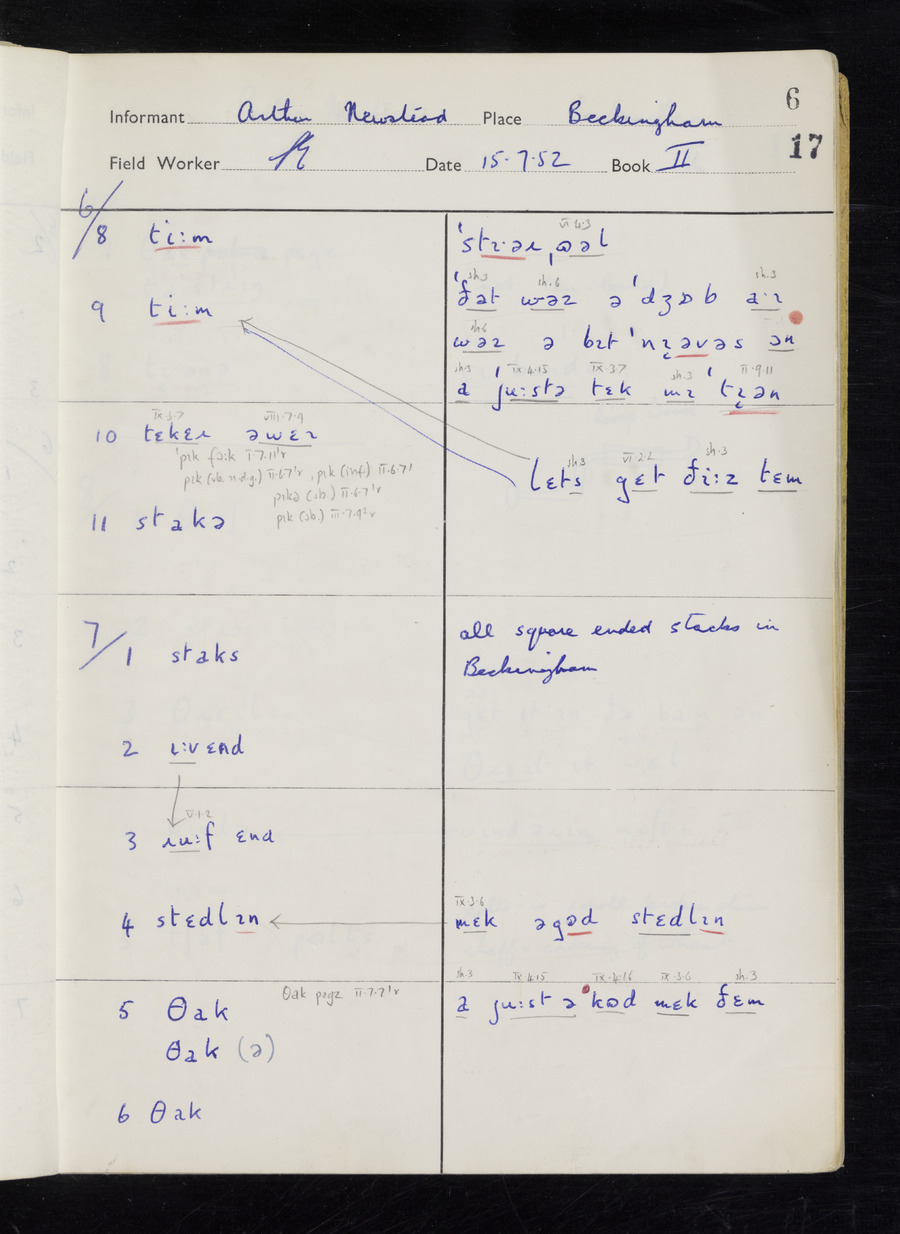 6
Informant Arthur Newstead Place Beckingham
17
Field Worker Date 15.7.52 Book II
6/8 tɪ:m
VI.4.3
9 tɪ:m
sh.3 sh.6 sh.3
ðat wəz ə ˈdʒɒb
sh.6
wəz ə bɪt
sh.3 IX.4.15 IX.3.7 sh.3 II.9.11
a ˈju:stə tɛk mɪ
IX.3.7 VIII.7.9
10 tɛkɛɹ əwɛɪ
I.7.11'r
pɪk (vb. n.d.g.) II.6.7'r, pɪk (inf.) II.6.7'
pɪkə (sb.) II.6.7'r
pɪk (sb.) III.7.9²r
sh.3 VI.2.2 sh.3
lɛts gɛt ði:z tɛm
11 stakə
7/1 staks
all square ended stacks in
Beckingham
2 ɹɪ:v ɛnd
V.1.2
3 ɹu:f ɛnd
IX.3.6
4 stɛdlɪn
mɛk əgəd stɛdlɪn
θak pegz II.7.7'r
sh.3 IX.4.15 IX.4.16 IX.3.6 sh.3
5 θak
a ju:st ə kʊd mɛk ðɛm
θak (ə)
6 θak